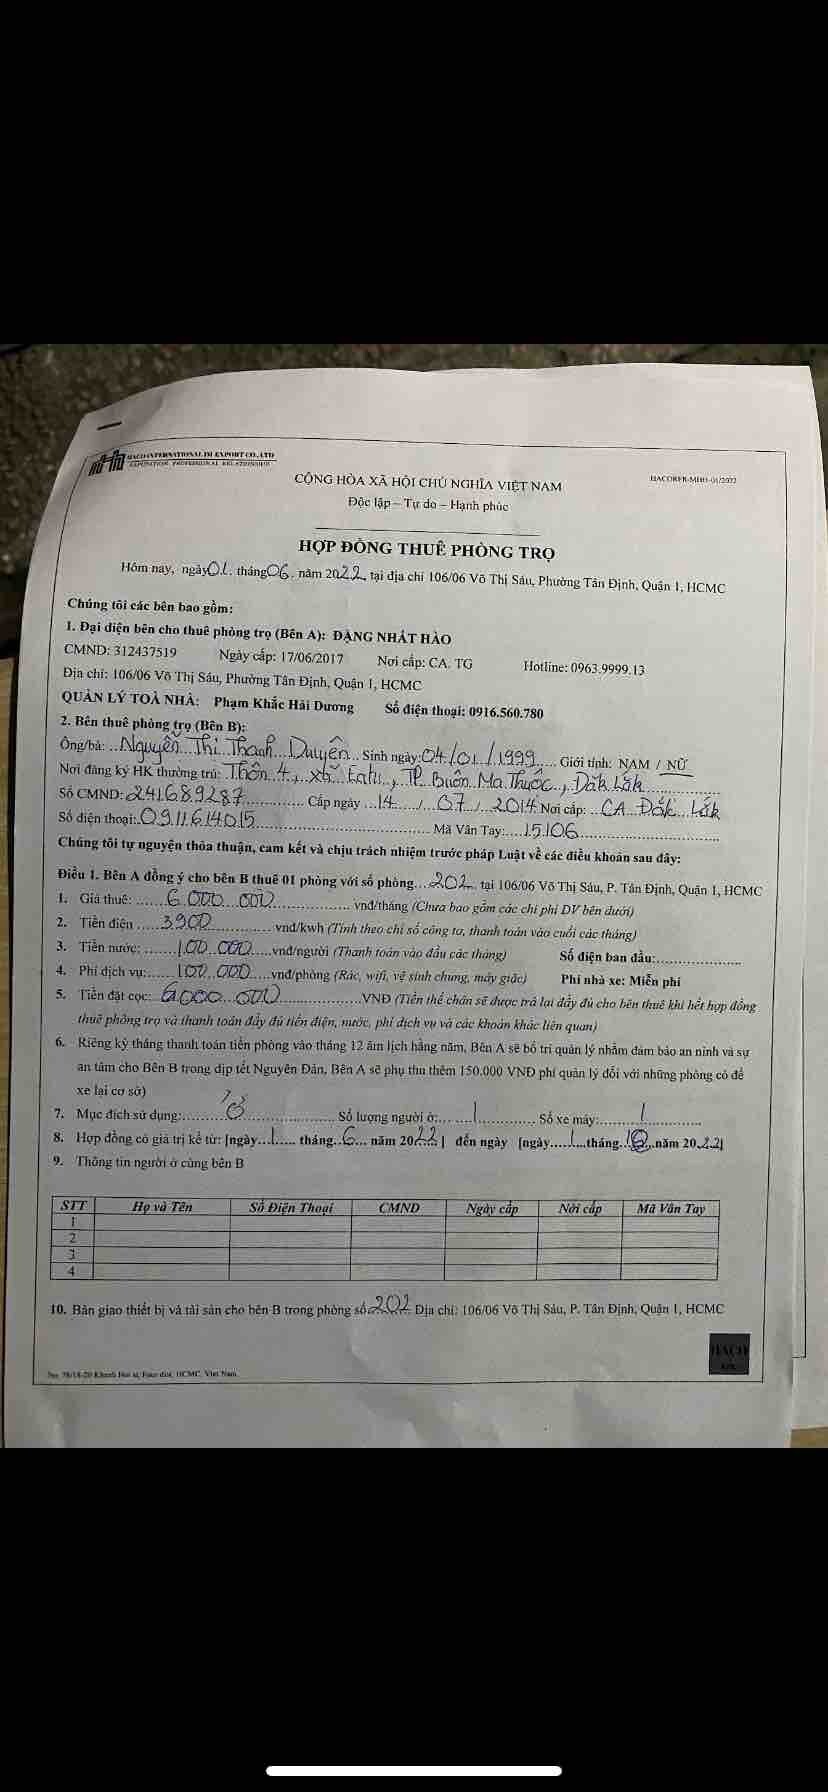 HACO INTERNATIONAL IM EXPORT CO., LTD
CỘNG HÒA XÃ HỘI CHỦ NGHĨA VIỆT NAM
Độc lập – Tự do – Hạnh phúc
HỢP ĐỒNG THUÊ PHÒNG TRỌ
Hôm nay, ngày 01 tháng 06 năm 2022 tại địa chỉ 106/06 Võ Thị Sáu, Phường Tân Định, Quận 1, HCMC
Chúng tôi các bên bao gồm:
1. Đại diện bên cho thuê phòng trọ (Bên A): ĐẶNG NHẤT HÀO
CMND: 312437519 Ngày cấp: 17/06/2017 Nơi cấp: CA. TG Hotline: 0963.9999.13
Địa chỉ: 106/06 Võ Thị Sáu, Phường Tân Định, Quận 1, HCMC
QUẢN LÝ TOÀ NHÀ: Phạm Khắc Hải Dương Số điện thoại: 0916.560.780
2. Bên thuê phòng trọ (Bên B):
Ông/bà: Nguyễn Thị Thanh Duyên Sinh ngày: 04/01/1999 Giới tính: NAM / NỮ
Nơi đăng ký HK thường trú: Thôn 4, xã Eatu, TP Buôn Ma Thuộc, Đăk Lăk
Số CMND: 241689287 Cấp ngày 14 / 07 / 2014 Nơi cấp: CA Đắk Lắk
Số điện thoại: 0911614015 Mã Vân Tay: 15106
Chúng tôi tự nguyện thỏa thuận, cam kết và chịu trách nhiệm trước pháp Luật về các điều khoản sau đây:
Điều 1. Bên A đồng ý cho bên B thuê 01 phòng với số phòng 202 tại 106/06 Võ Thị Sáu, P. Tân Định, Quận 1, HCMC
1. Giá thuê: 6 000 000 vnđ/tháng (Chưa bao gồm các chi phí DV bên dưới)
2. Tiền điện 3900 vnđ/kwh (Tính theo chỉ số công tơ, thanh toán vào cuối các tháng)
3. Tiền nước: 100.000 vnđ/người (Thanh toán vào đầu các tháng) Số điện ban đầu:
4. Phí dịch vụ: 100.000 vnđ/phòng (Rác, wifi, vệ sinh chung, máy giặc) Phí nhà xe: Miễn phí
5. Tiền đặt cọc: 6000.000 VNĐ (Tiền thế chân sẽ được trả lại đầy đủ cho bên thuê khi hết hợp đồng
thuê phòng trọ và thanh toán đầy đủ tiền điện, nước, phí dịch vụ và các khoản khác liên quan)
6. Riêng kỳ tháng thanh toán tiền phòng vào tháng 12 âm lịch hằng năm, Bên A sẽ bố trí quản lý nhằm đảm bảo an ninh và sự
an tâm cho Bên B trong dịp tết Nguyên Đán, Bên A sẽ phụ thu thêm 150.000 VNĐ phí quản lý đối với những phòng có để
xe lại cơ sở)
7. Mục đích sử dụng: Số lượng người ở: 1 Số xe máy: 1
8. Hợp đồng có giá trị kể từ: [ngày 1 tháng 6 năm 2022] đến ngày [ngày 1 tháng năm 2022]
9. Thông tin người ở cùng bên B
STT Họ và Tên Số Điện Thoại CMND Ngày cấp Nơi cấp Mã Vân Tay
1
2
3
4
10. Bàn giao thiết bị và tài sản cho bên B trong phòng số 202 Địa chỉ: 106/06 Võ Thị Sáu, P. Tân Định, Quận 1, HCMC
HACO